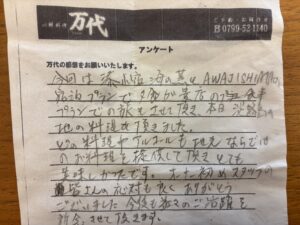 万代
ご予約・お問合せ
☎0799-52-1140
アンケート
万代の感想をお願いいたします。
今回は 海の
宿泊プランで 夕食が貴店の 食事
プランでの旅をさせて頂き 本日 淡路島の
地の料理を頂きました。
アルコールも 地元ならでは
のお料理を提供して頂き とても
美味しかったです。 初めスタッフの
皆さんの応対も良く ありがとう
ございました 今後も益々のご活躍を
させて頂きます。